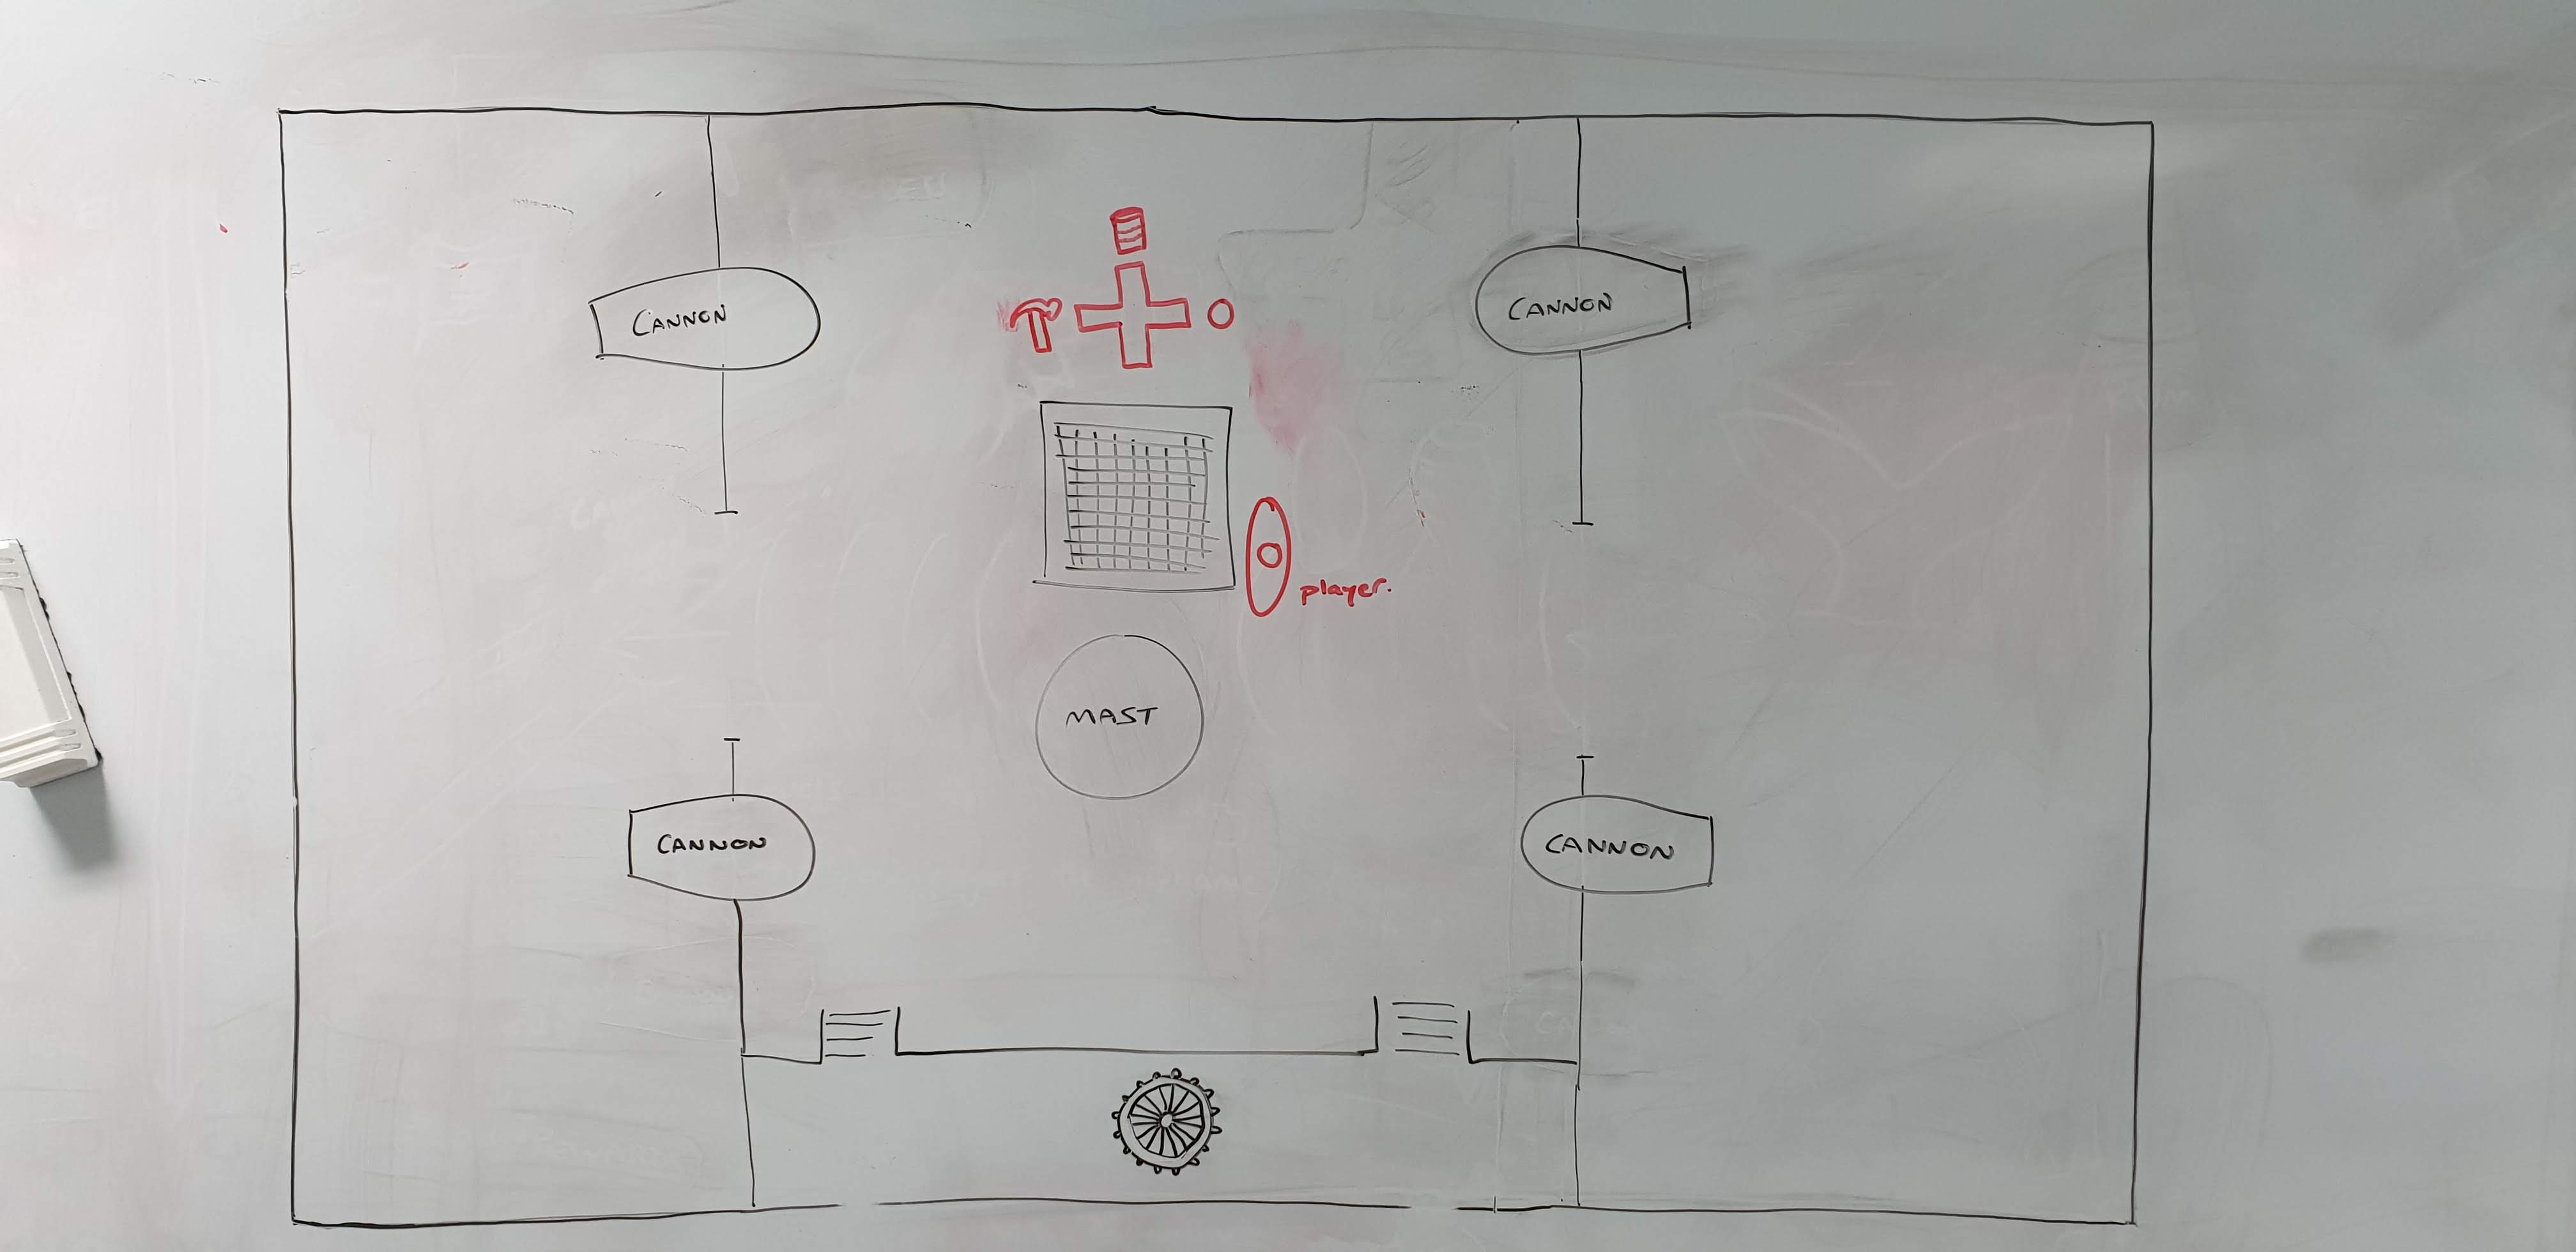 CANNON
CANNON
player.
MAST
CANNON
CANNON